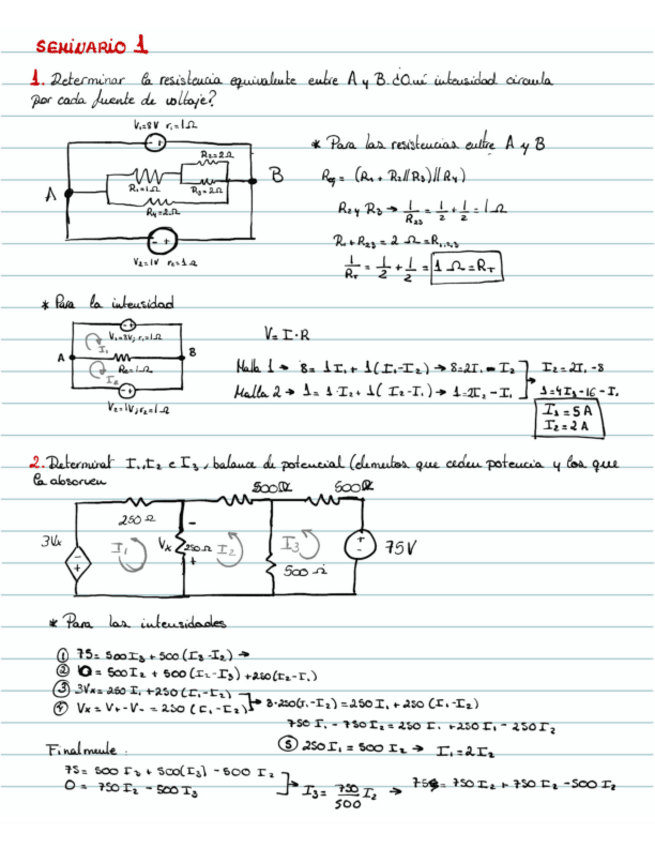 SEMINARIO 1
1. Determinar la resistencia equivalente entre A y B. ¿Qué intensidad circula
por cada fuente de voltaje?
V₁=8V r₁=1Ω
R₂=2Ω
R₁=1Ω
R₃=2Ω
R₄=2Ω
A
B
V₂=1V r₂=1Ω
* Para las resistencias entre A y B
Req = (R₁ + R₂//R₃)//R₄)
R₂ y R₃ → 1/R₂₃ = 1/2 + 1/2 = 1Ω
R₁+R₂₃ = 2 Ω = R₁,₂,₃
1/RT = 1/2 + 1/2 = 1 Ω = RT
* Para la intensidad
V₁=8V; r₁=1Ω
I₁
A
B
I₂
V₂=1V; r₂=1Ω
V= I·R
Malla 1 → 8= 1I₁ + 1(I₁-I₂) → 8=2I₁ - I₂
Malla 2 → 1= 1·I₂ + 1(I₂-I₁) → 1=2I₂ - I₁
I₂=2I₁-8
1=4I₁-16-I₁
I₁ = 5A
I₂ = 2A
2. Determinar I₁, I₂ e I₃, balance de potencial (elementos que ceden potencia y los que
la absorven
250Ω
500Ω
500Ω
3Vx
I₁
Vx
250Ω
I₂
I₃
500Ω
75V
* Para las intensidades
① 75= 500I₃ + 500(I₃-I₂) →
② 0= 500I₂ + 500(I₂-I₃) + 250(I₂-I₁)
③ 3Vx= 250I₁ + 250(I₁-I₂)
④ Vx= V₊-V₋ = 250(I₁-I₂)
→ 3·250(I₁-I₂) = 250I₁ + 250(I₁-I₂)
750I₁ - 750I₂ = 250I₁ + 250I₁ - 250I₂
⑤ 250I₁ = 500I₂ → I₁=2I₂
Finalmente:
75= 500I₃ + 500(I₃) - 500I₂
0= 750I₂ - 500I₃
I₃= 750/500 I₂ → 75= 750I₂ + 750I₂ - 500I₂